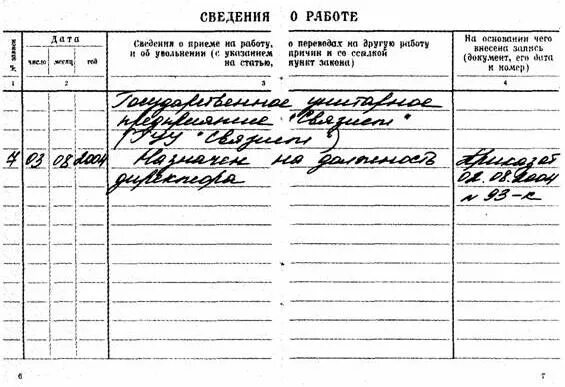 СВЕДЕНИЯ О РАБОТЕ
№ записи
Дата
число месяц год
Сведения о приеме на работу, о переводах на другую работу
и об увольнении (с указанием причин и со ссылкой
на статью, пункт закона)
На основании чего
внесена запись
(документ, его дата
и номер)
1 2 3 4
Государственное унитарное
предприятие "Связист"
(ГУП "Связист")
7 03 08 2004 Назначен на должность Приказ от
директора 02.08.2004
№ 93-к
6 7